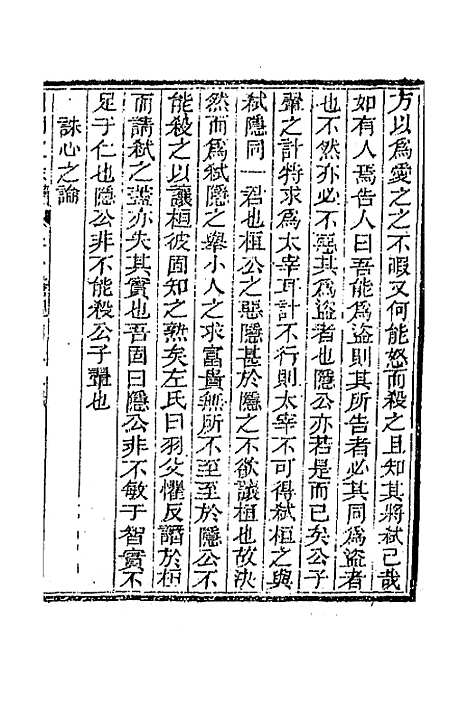 方以為愛之之不暇又何能怒而殺之且知其將弒己哉
如有人焉告人曰吾能為盜則其所告者必其同為盜者
也不然亦必不惡其為盜者也隱公亦若是而已矣公子
翬之計特求為太宰耳計不行則太宰不可得弒桓之與
弒隱同一君也桓公之惡隱甚於隱之不欲讓桓也故決
然而為弒隱之舉小人之求富貴無所不至至於隱公不
能殺之以讓桓彼固知之熟矣左氏曰羽父懼反譖於桓
而請弒之蓋亦失其實也吾固曰隱公非不敏于智實不
足于仁也隱公非不能殺公子翬也
誅心之論